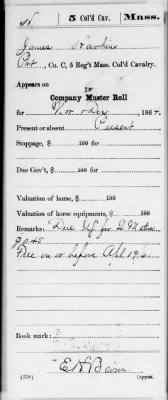 5 Col'd Cav. Mass.
James Hawkins
Pvt., Co. C, 5 Reg't Mass. Col'd Cavalry.
Appears on
Company Muster Roll
for Nov & Dec, 1864.
Present or absent Present
Stoppage, $ 100 for
Due Gov't, $ 100 for
Valuation of horse, $ 100
Valuation of horse equipments, $ 100
Remarks: Due
Free on or before Apl 19,
Book mark:
(358) Copyist.